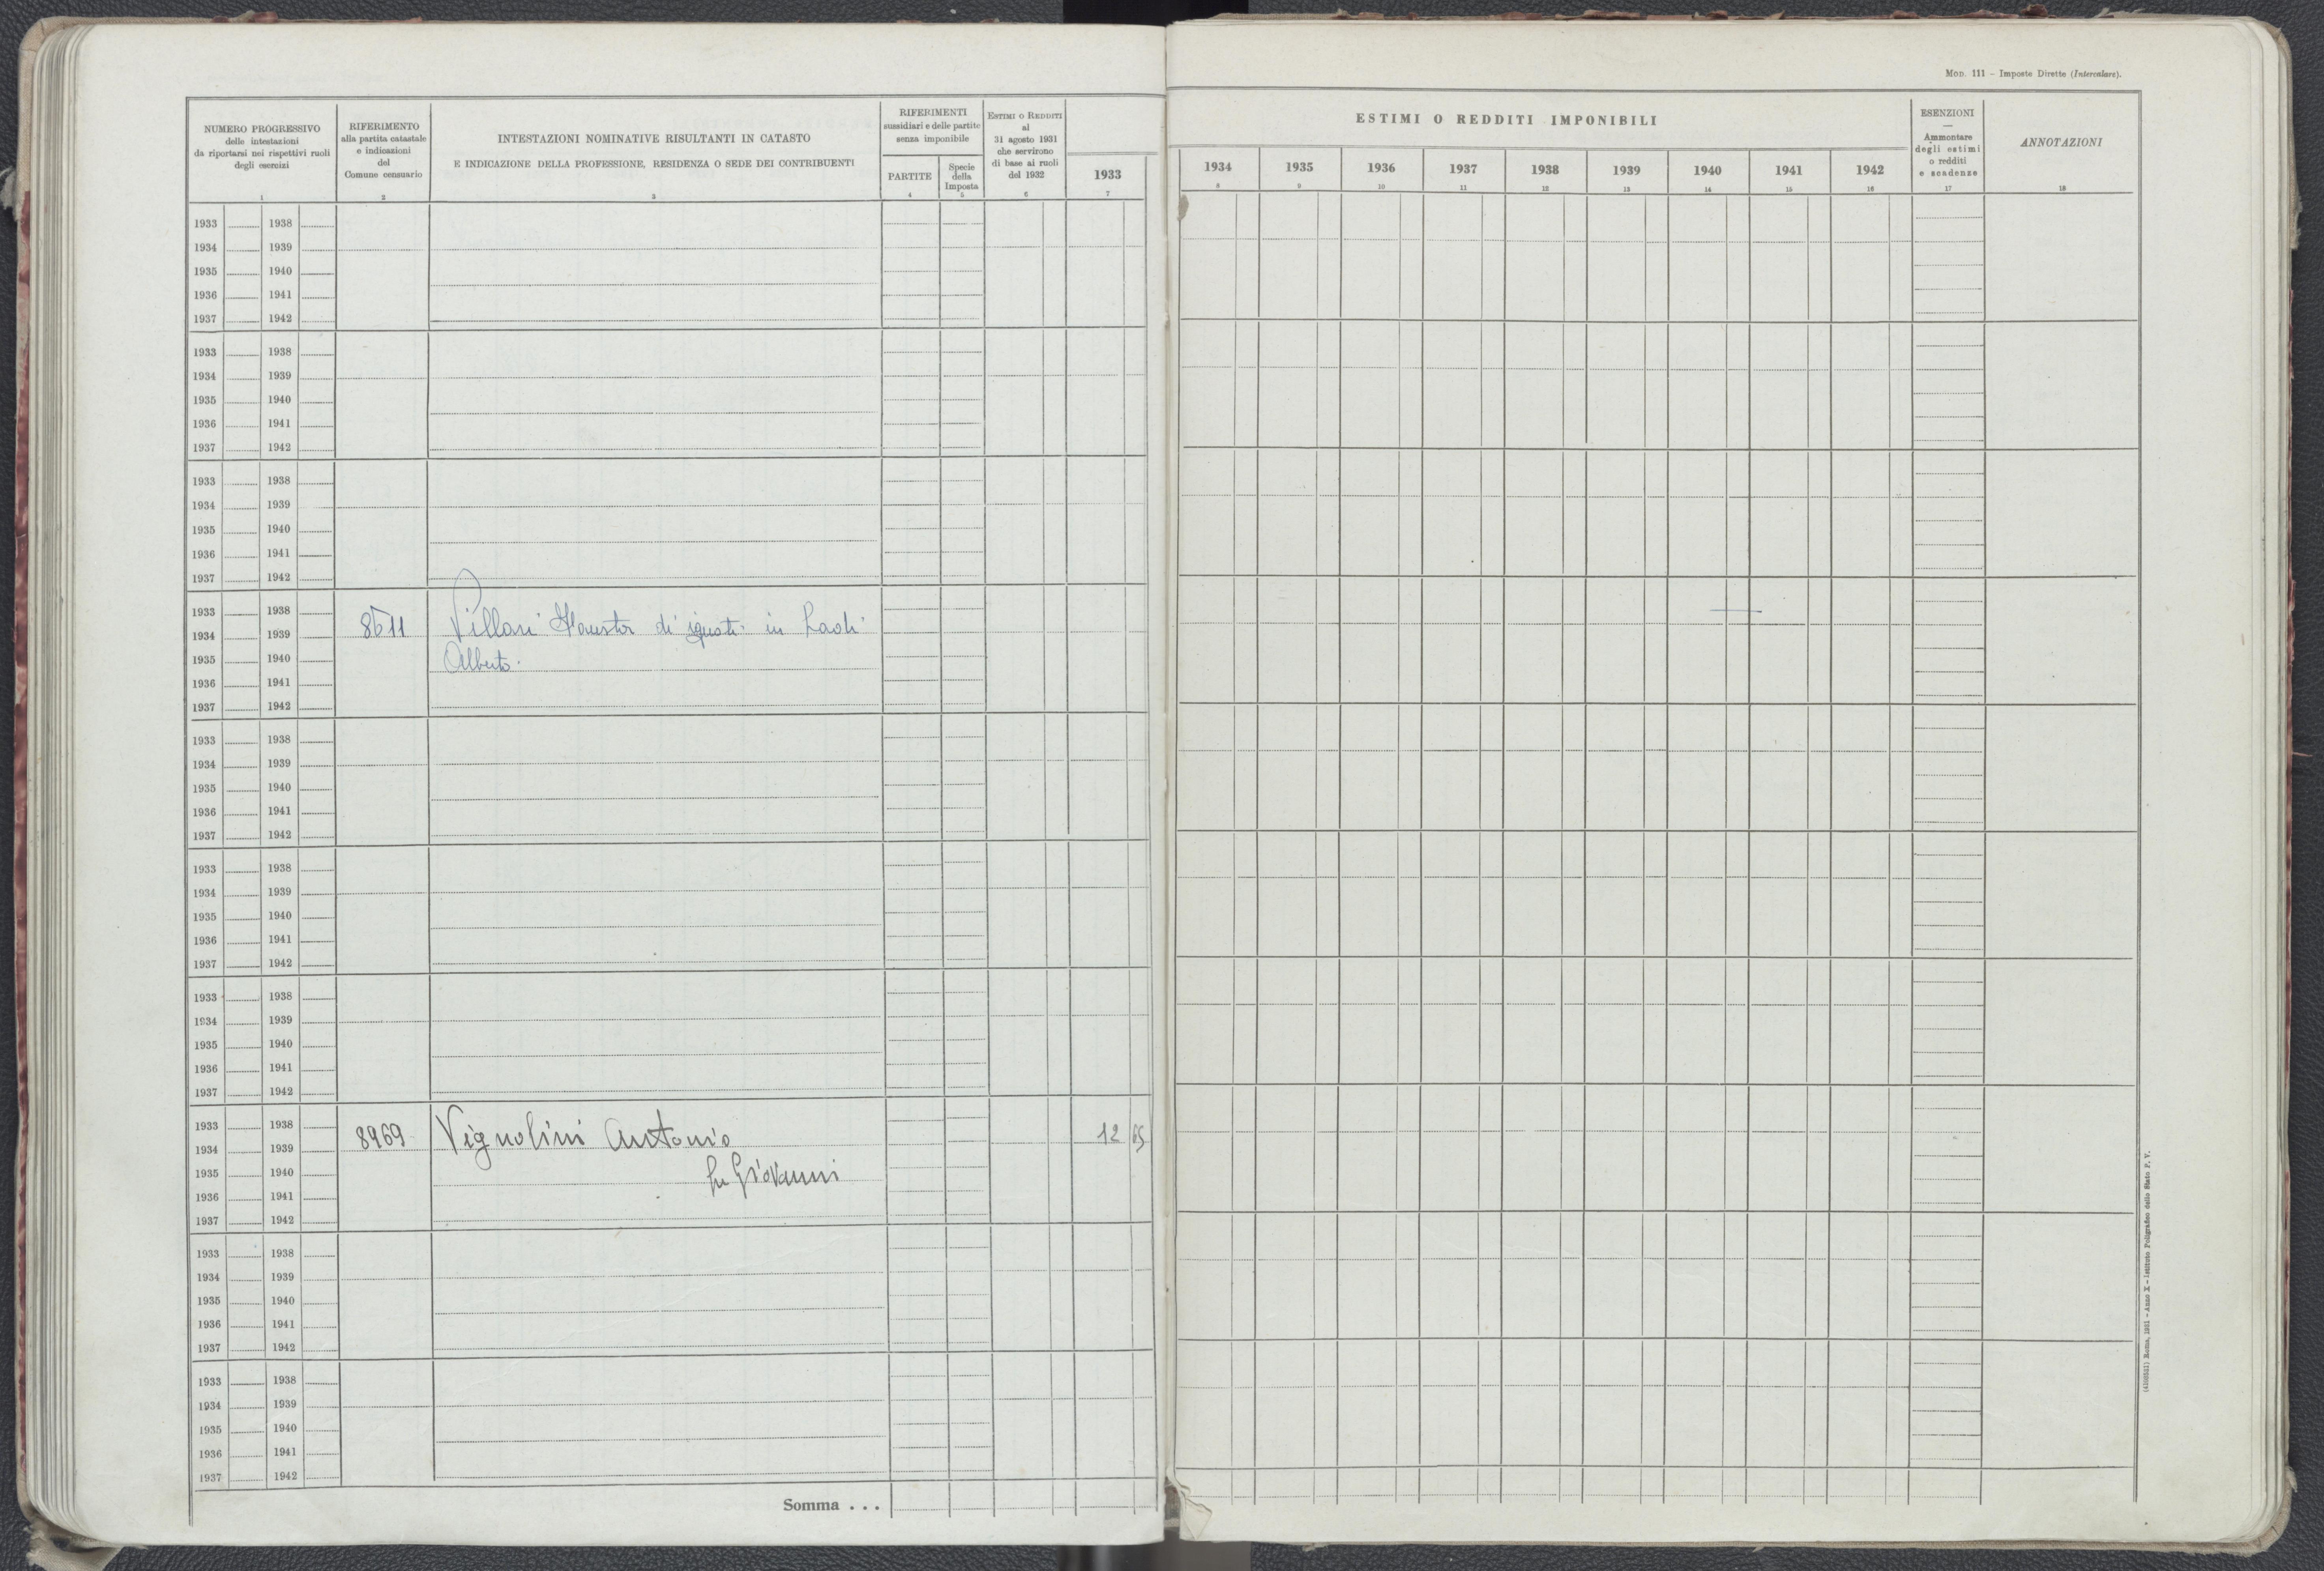 MOD. 111 - Imposte Dirette (Intercalare).
NUMERO PROGRESSIVO
delle intestazioni
da riportarsi nei rispettivi ruoli
degli esercizi
1
RIFERIMENTO
alla partita catastale
e indicazioni
del
Comune censuario
2
INTESTAZIONI NOMINATIVE RISULTANTI IN CATASTO
E INDICAZIONE DELLA PROFESSIONE, RESIDENZA O SEDE DEI CONTRIBUENTI
3
RIFERIMENTI
sussidiari e delle partite
senza imponibile
PARTITE
4
Specie
della
Imposta
5
ESTIMI O REDDITI
al
31 agosto 1931
che servirono
di base ai ruoli
del 1932
6
1933
7
ESTIMI O REDDITI IMPONIBILI
1934 1935 1936 1937 1938 1939 1940 1941 1942
8 9 10 11 12 13 14 15 16
ESENZIONI
—
Ammontare
degli estimi
o redditi
e scadenze
17
ANNOTAZIONI
18
1933 1938
1934 1939
1935 1940
1936 1941
1937 1942
1933 1938
1934 1939
1935 1940
1936 1941
1937 1942
1933 1938
1934 1939
1935 1940
1936 1941
1937 1942
1933 1938
1934 1939 8611 Villari di in
1935 1940 Alberto.
1936 1941
1937 1942
1933 1938
1934 1939
1935 1940
1936 1941
1937 1942
1933 1938
1934 1939
1935 1940
1936 1941
1937 1942
1933 1938
1934 1939
1935 1940
1936 1941
1937 1942
1933 1938
1934 1939 8969 Vignolini Antonio 12 65
1935 1940 fu Giovanni
1936 1941
1937 1942
1933 1938
1934 1939
1935 1940
1936 1941
1937 1942
1933 1938
1934 1939
1935 1940
1936 1941
1937 1942
Somma . . .
(4100351) Roma, 1931 - Anno X - Istituto Poligrafico dello Stato P. V.